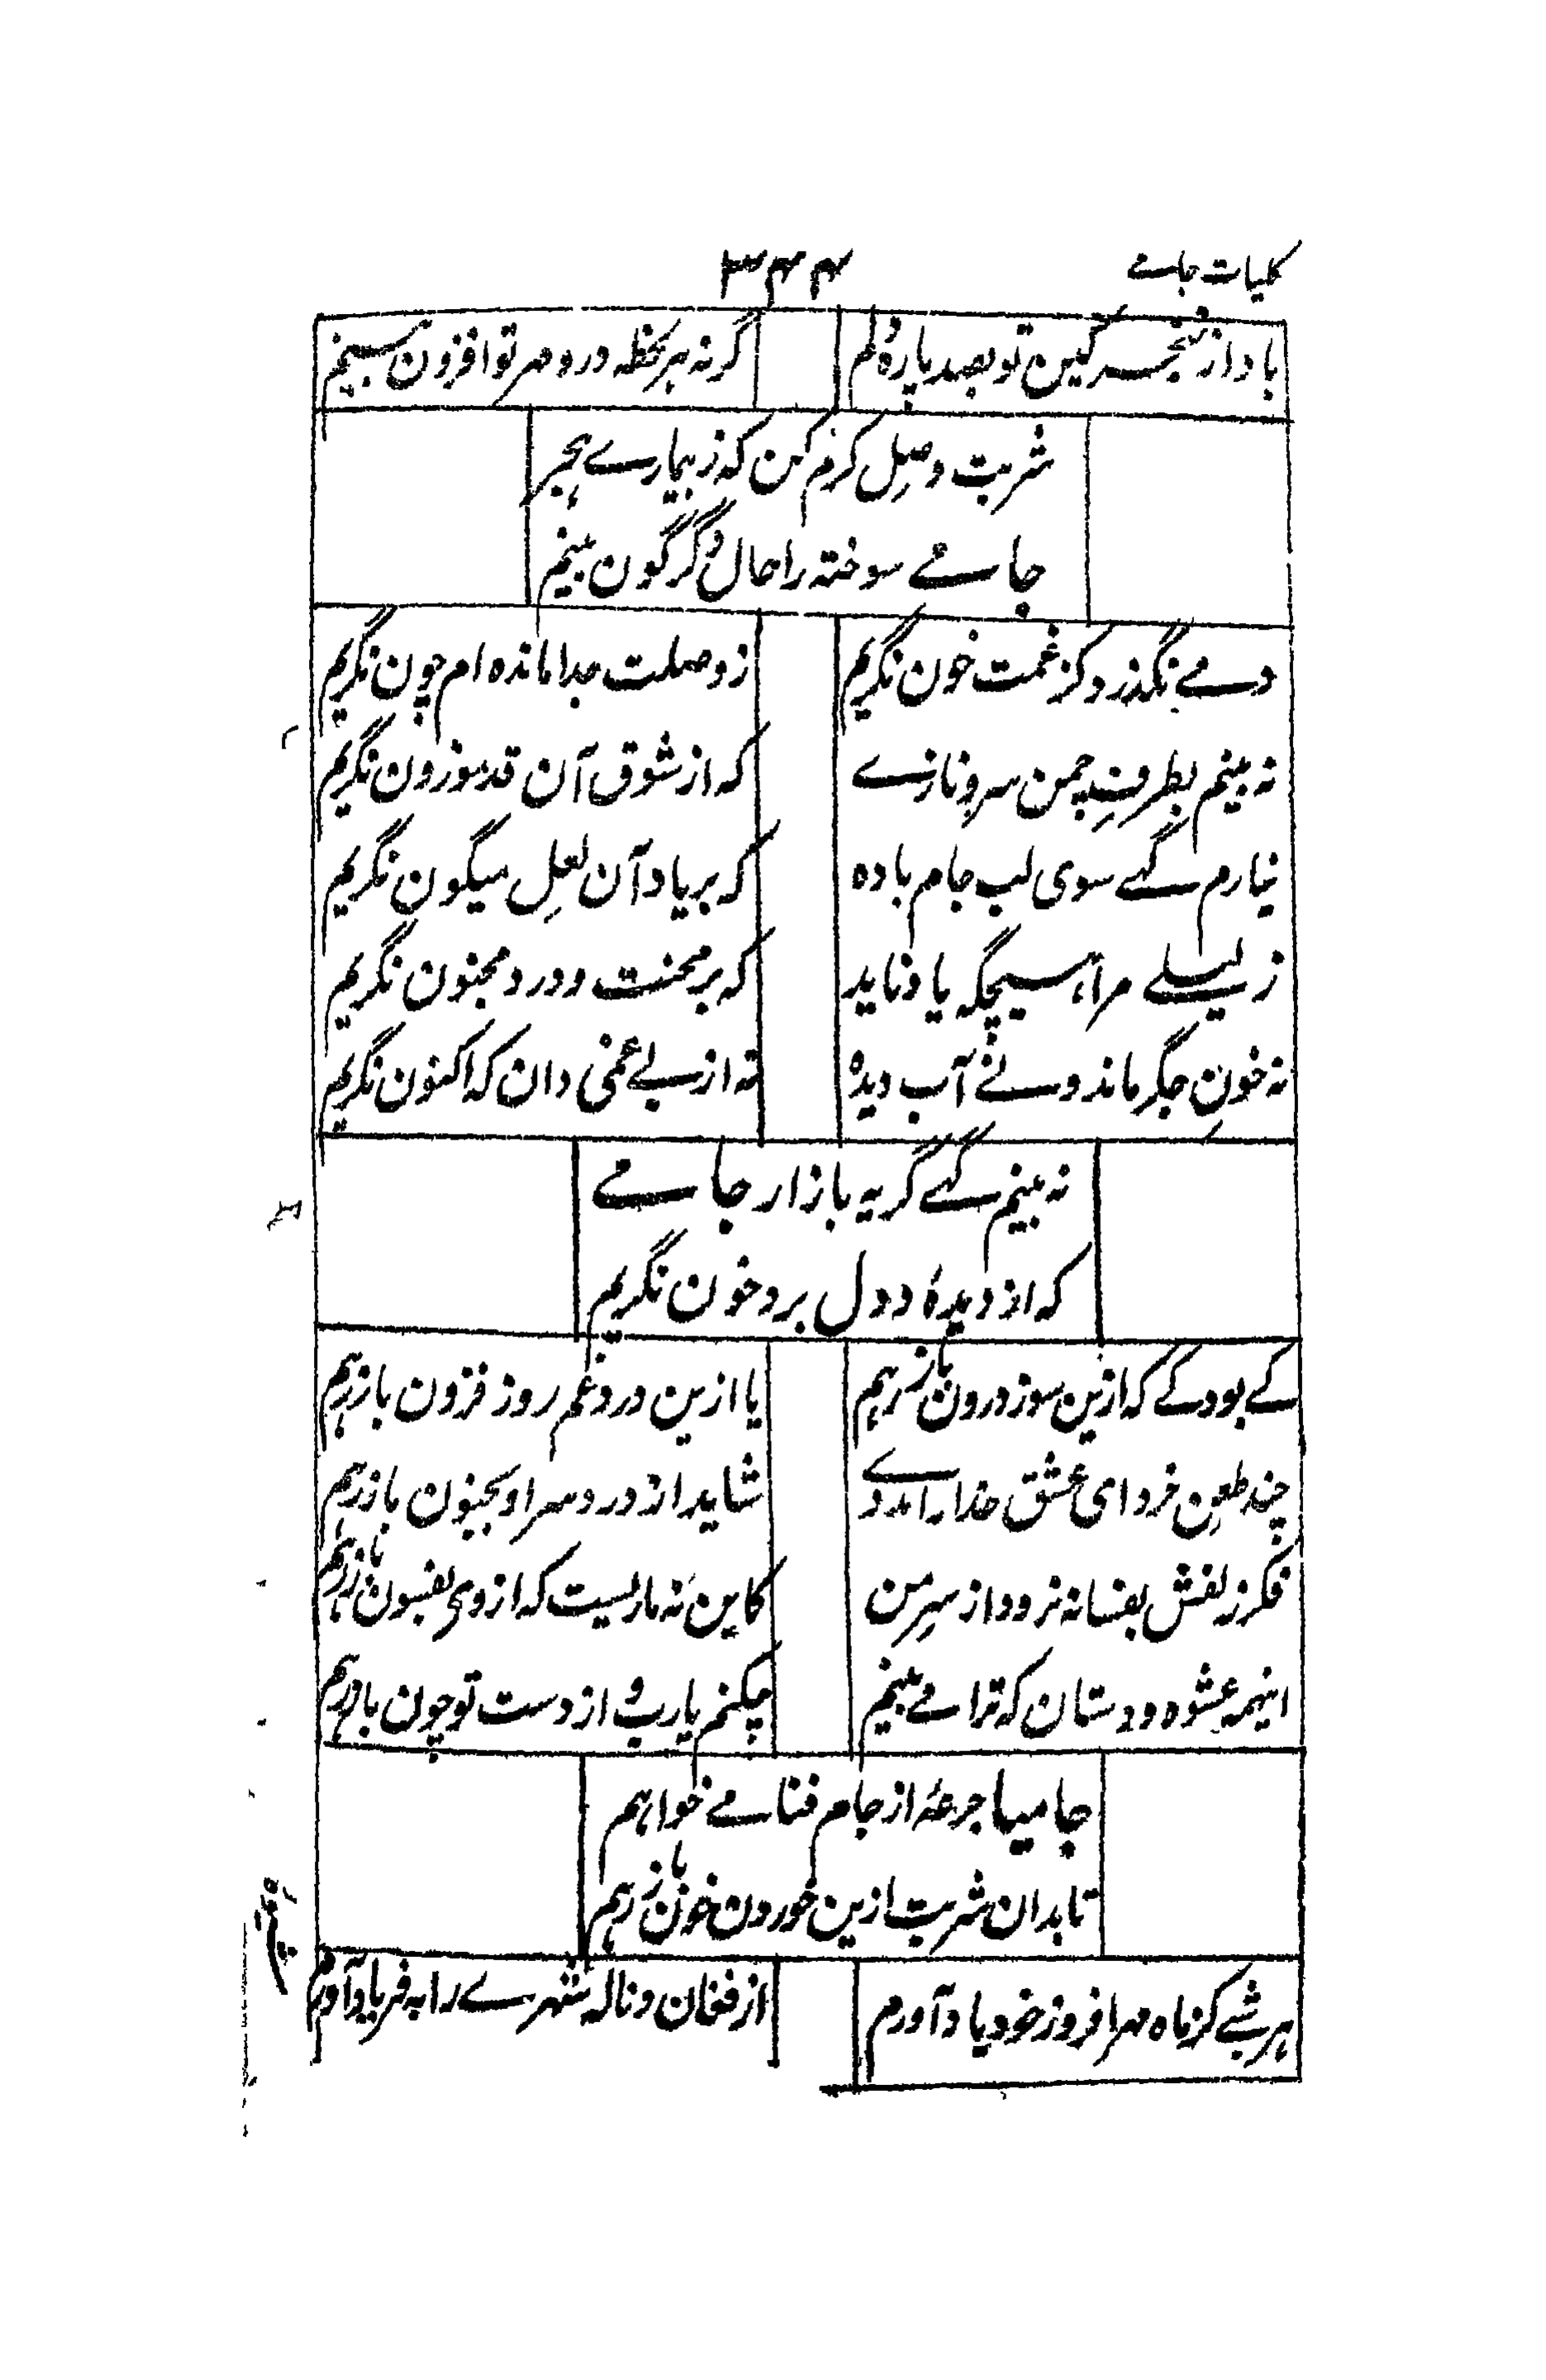 کلیات جامے
۳۴۴
باد از خنجر کین تو بصد پاره دلم
گر نه هر لحظه در و مهر تو افزون بینم
شربت وصل کرم کن که ز بیمارے هجر
جامے سوخته را حال دگرگون بینم
دمے نگذرد کز غمت خون نگریم
ز وصلت جدا مانده ام چون نگریم
نه بینم بطرفِ چمن سرو نازے
که از شوق آن قد موزون نگریم
نیارم گهے سوی لب جام باده
که بر یاد آن لعلِ میگون نگریم
ز لیلے مرا هیچگه یاد ناید
که بر محنت و درد مجنون نگریم
نه خونِ جگر ماند و نے آب دیده
نه از بے غمی دان که اکنون نگریم
نه بینم گهے گر به بازار جامے
که از دیدهٔ و دل برو خون نگریم
کے بود کے که ازین سوز درون باز رهم
یا ازین درد و غم روز فزون باز رهم
چند طعنِ خرد ای عشق خدا را مددے
شاید از درد سر او بجنون باز رهم
فکر زلفش بفسانه نرود از سرِ من
کاین نه ماریست که از وی بفسون باز رهم
اینهمه عشوه و دستان که ترا مے بینم
چکنم یارب و از دست تو چون باز رهم
جامیا جرعهٔ از جام فنا مے خواهم
تا بدان شربت ازین خوردن خون باز رهم
هر شبے کز ماه مهر افروز خود یاد آورم
از فغان و ناله شهرے را به فریاد آورم